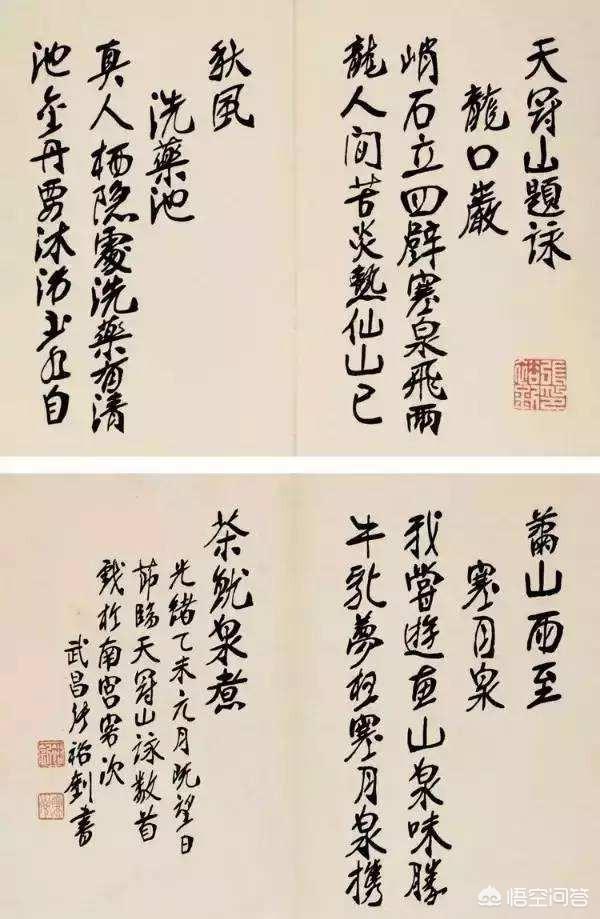 天冠山題詠
龍口巖
峭石立四壁寒泉飛兩
龍人間苦炎熱仙山已
秋風
洗藥池
真人栖隱處洗藥有清
池金丹要沐浴玉水自
蕭山雨至
寒月泉
我嘗遊惠山泉味勝
牛乳夢想寒月泉携
茶就泉煮
光緒乙未元月既望日
節臨天冠山詠數首
戲於南宮客次
武昌張裕釗書
悟空问答